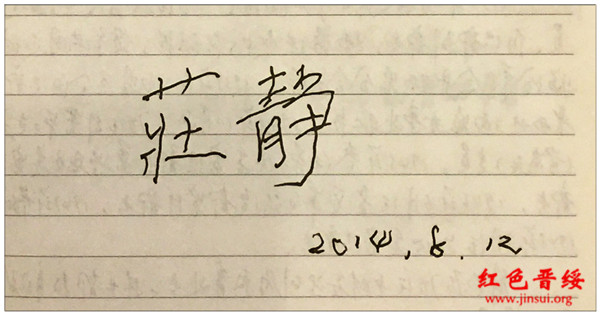 莊靜
2014.8.12
红色晋绥
www.jinsui.org